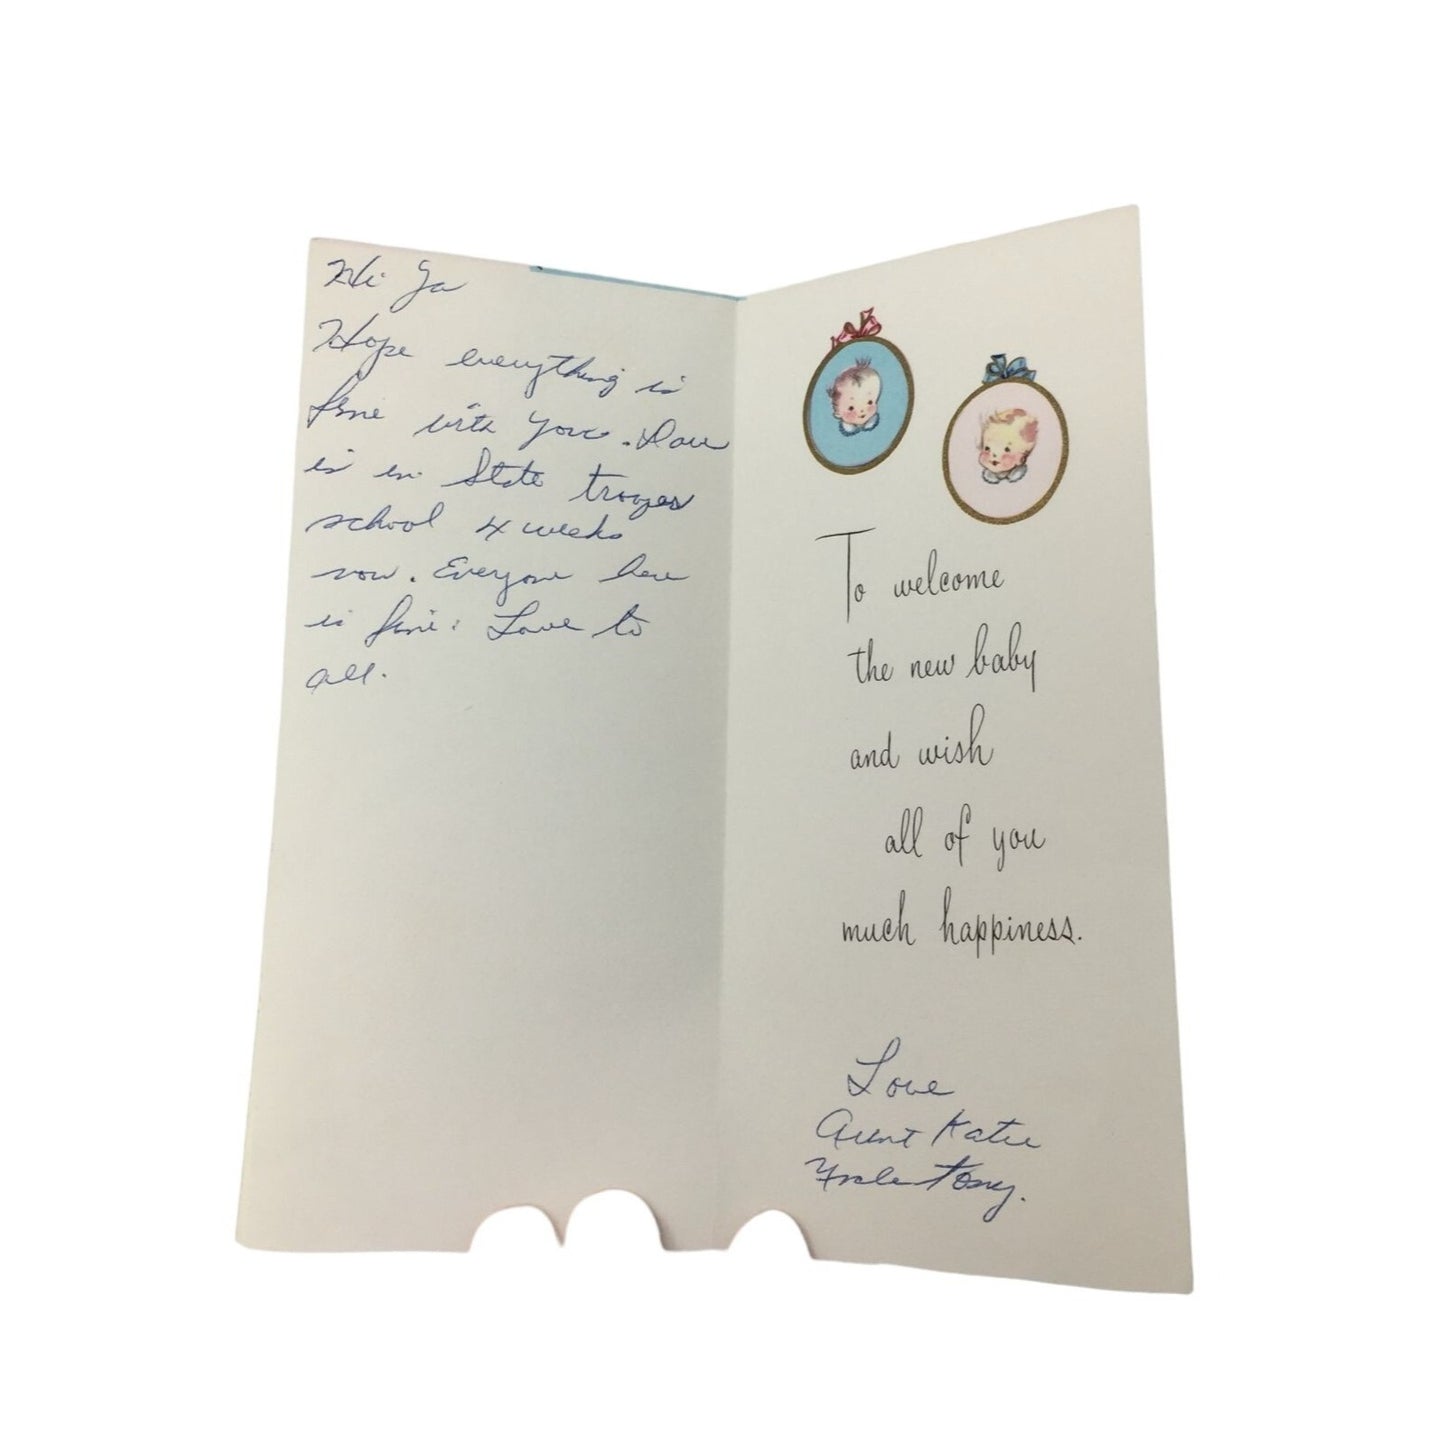 Hi Ya
Hope everything is
fine with you. Dave
is in State trooper
school 4 weeks
now. Everyone here
is fine. Love to
all.
To welcome
the new baby
and wish
all of you
much happiness.
Love
Aunt Katie
Uncle Tony.